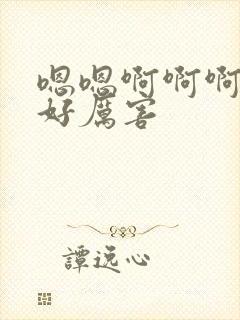 嗯嗯啊啊啊
好厲害
譚逸心